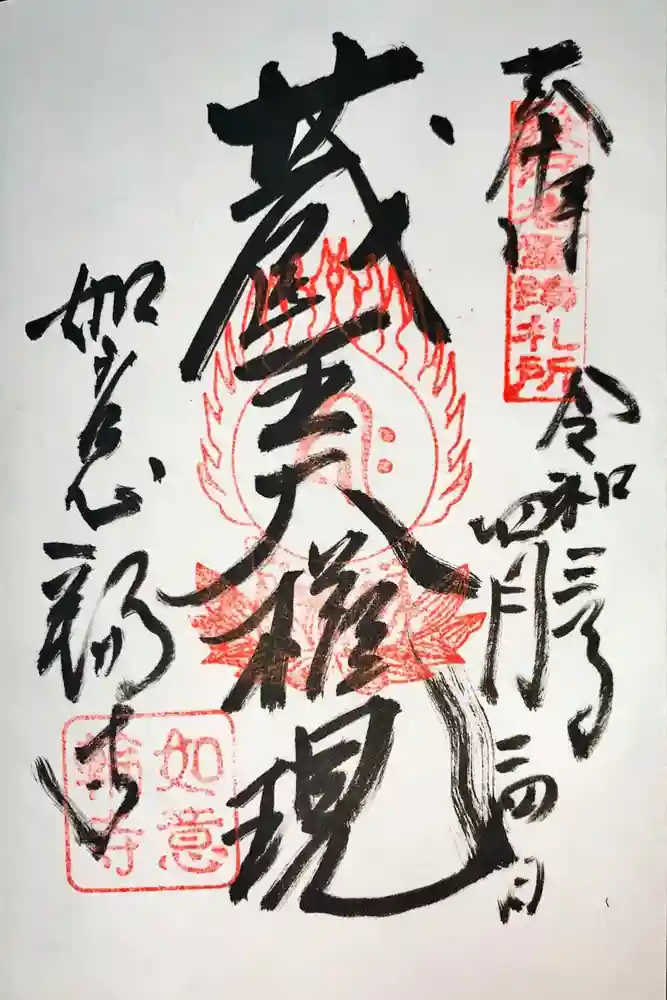 奉拝
役行者霊蹟札所
令和三年
四月二四日
蔵王大権現
如意輪寺
如意
輪寺